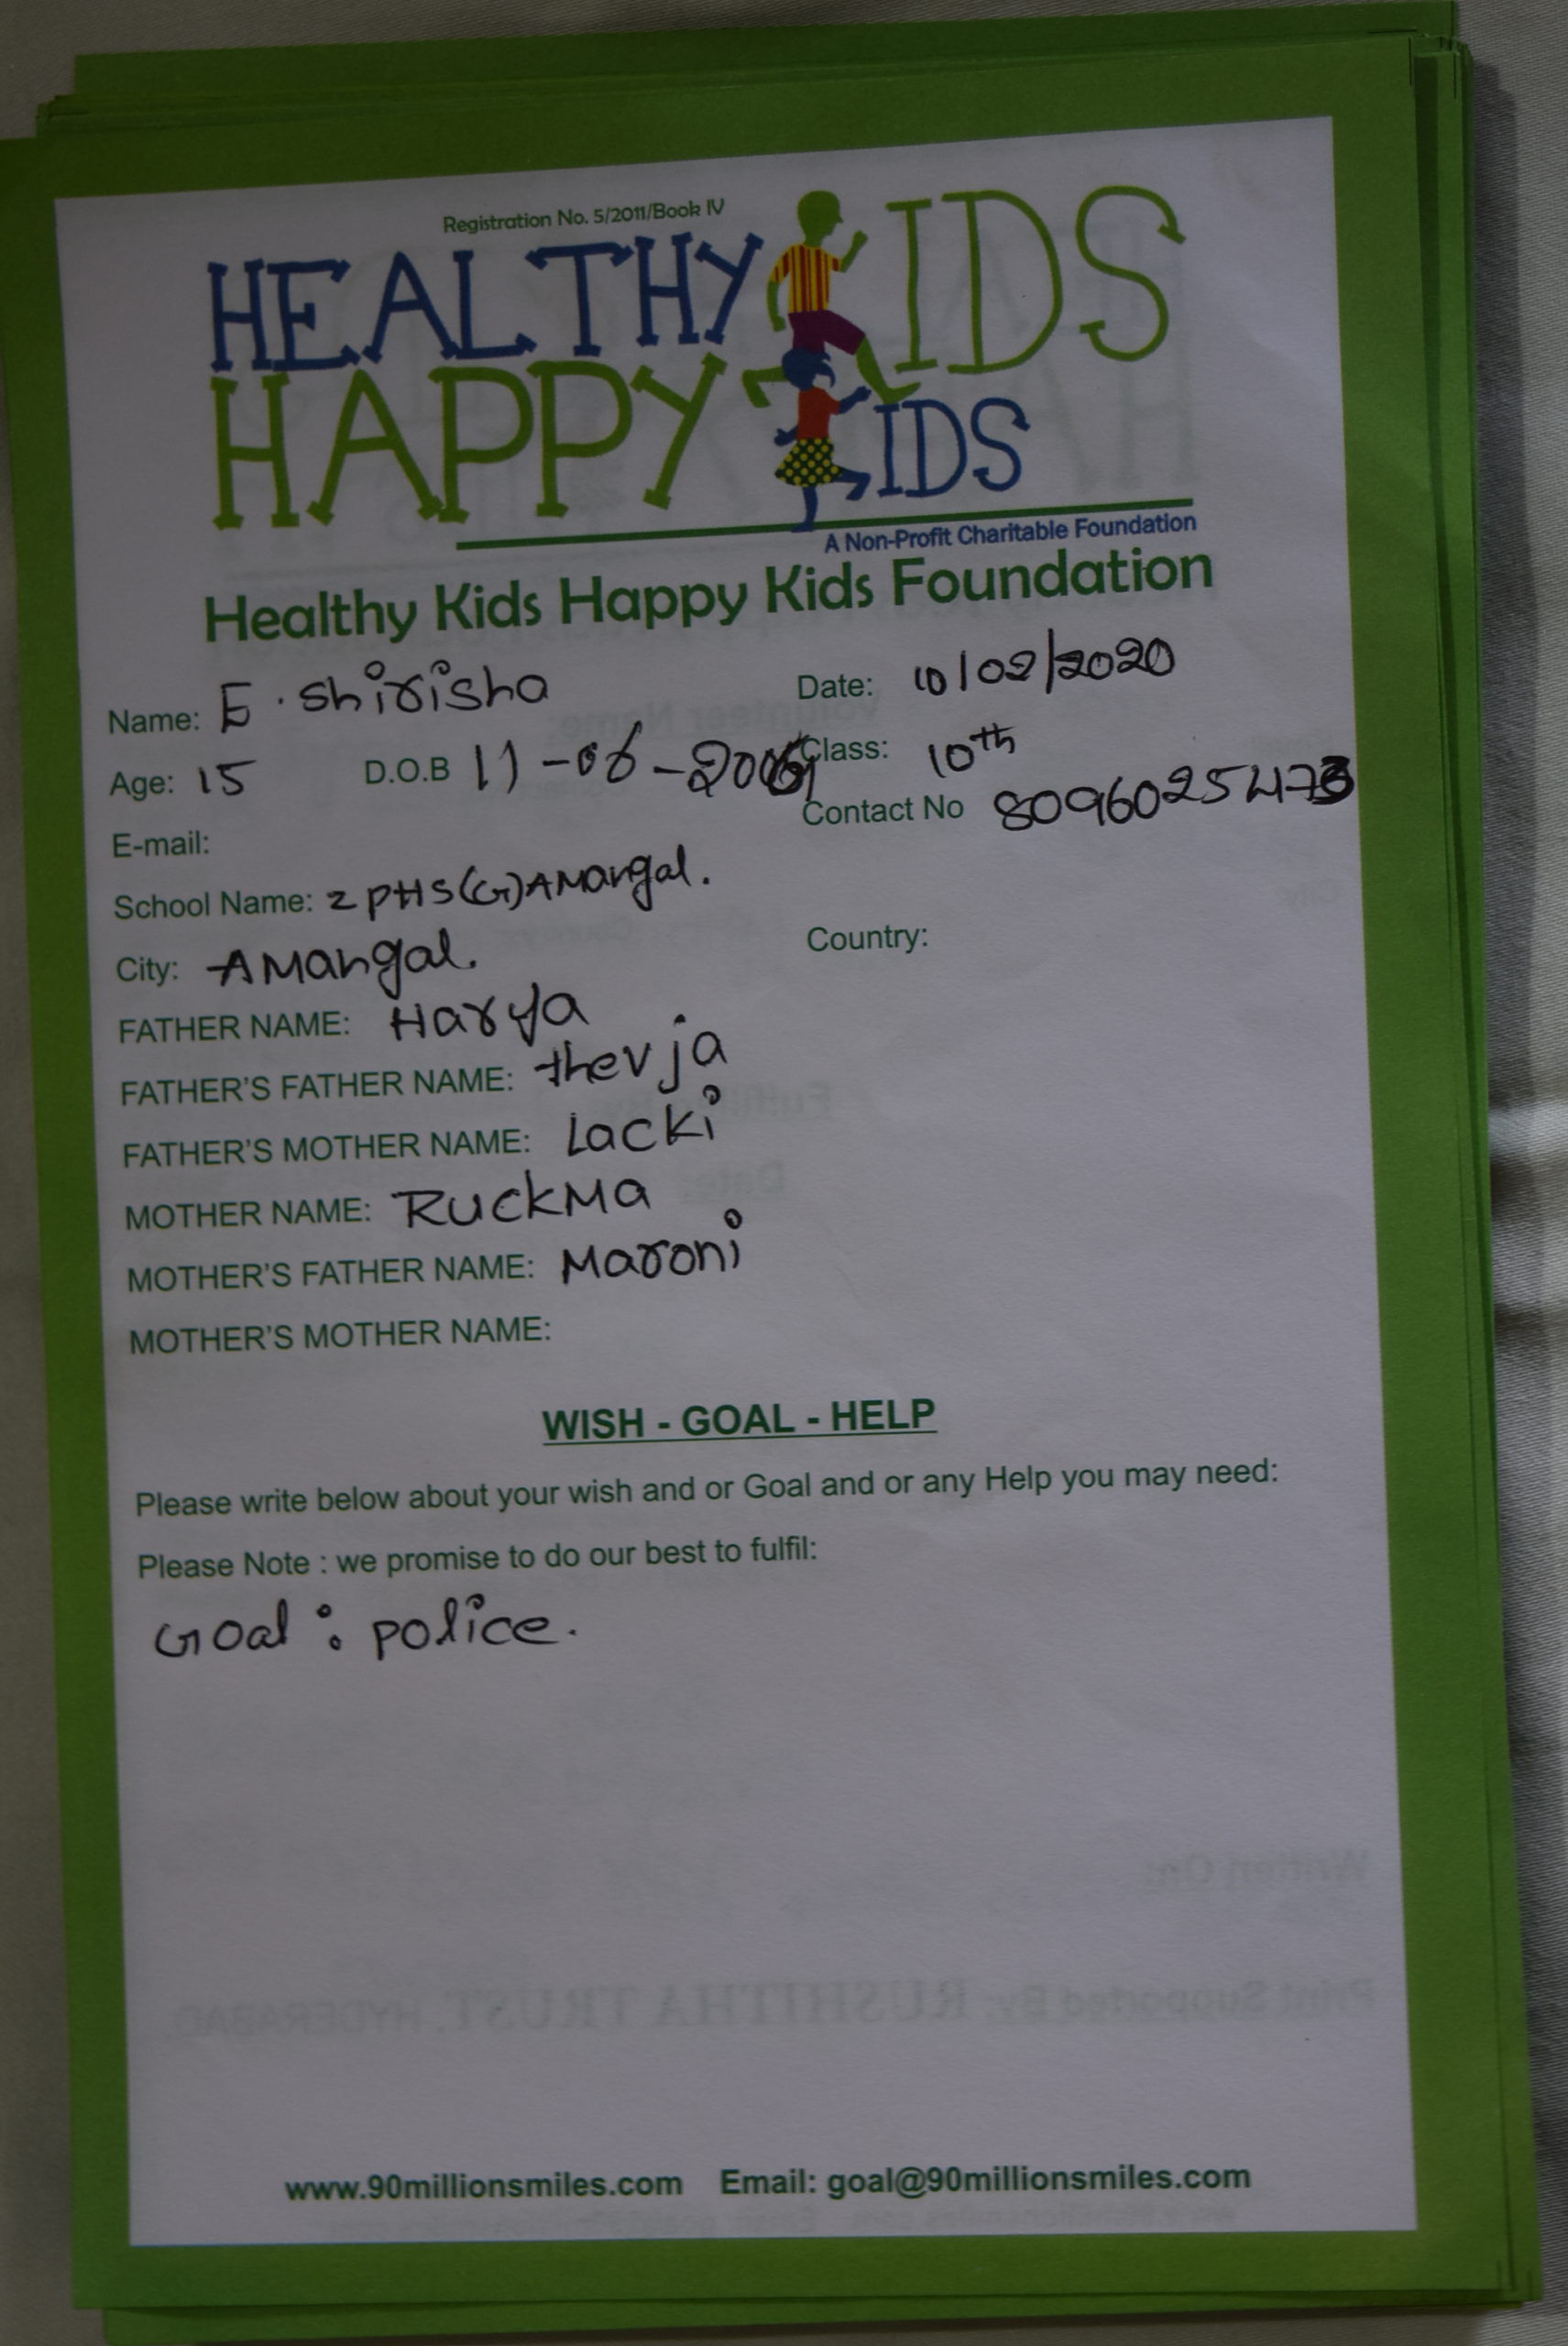 Registration No. 5/2011/Book IV
HEALTHY KIDS
HAPPY KIDS
A Non-Profit Charitable Foundation
Healthy Kids Happy Kids Foundation
Name: E. Shirisha Date: 10/02/2020
Age: 15 D.O.B 11-06- Class: 10th
E-mail: Contact No
School Name: ZPHS(G)AMangal.
City: AMangal. Country:
FATHER NAME: Harya
FATHER'S FATHER NAME: thevja
FATHER'S MOTHER NAME: Lacki
MOTHER NAME: RuckMa
MOTHER'S FATHER NAME: Maroni
MOTHER'S MOTHER NAME:
WISH - GOAL - HELP
Please write below about your wish and or Goal and or any Help you may need:
Please Note : we promise to do our best to fulfil:
Goal : police.
www.90millionsmiles.com Email: goal@90millionsmiles.com